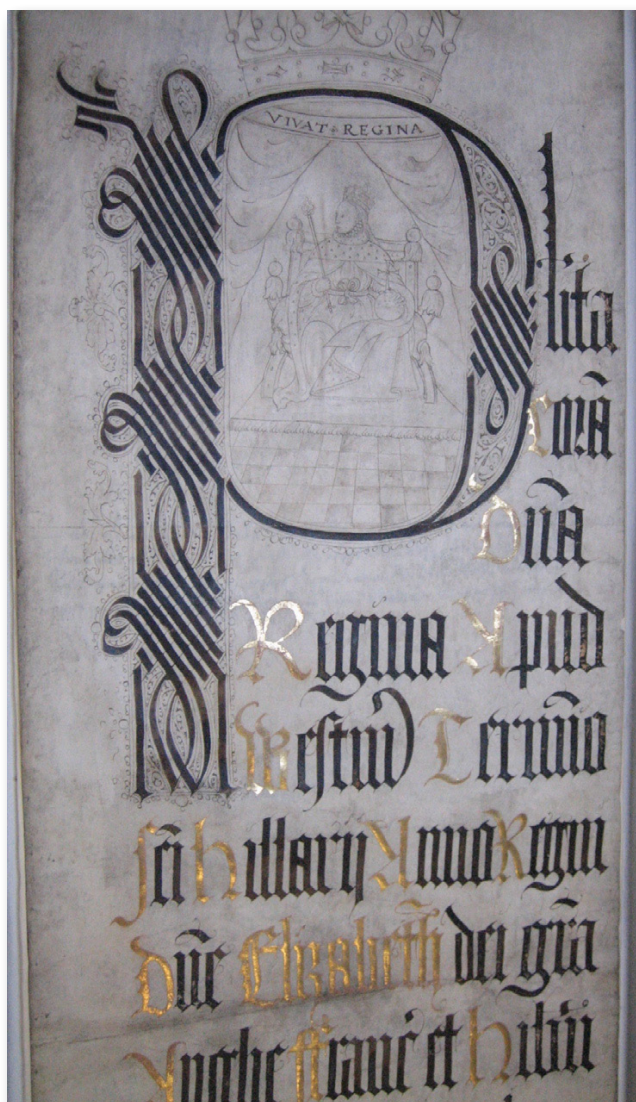 VIVAT REGINA
Pl̃ita
corã
Dñã
Regina Apud
Westm̃ Termĩo
Sc̃i Hillarij Anno Regni
Dñe Elizabeth̃ dei gr̃a
Anglie ffranc̃ et Hib̃ni